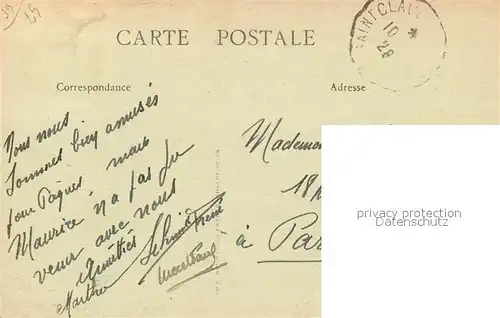 39
CARTE POSTALE
SAINT CLAUDE
10
28
Correspondance
Adresse
Nous nous
sommes bien amusés
pour Pâques, mais
Maurice n'a pas pu
venir avec nous
Amitiés
Marthe
Mademoi
18
à Par
privacy protection
watermark